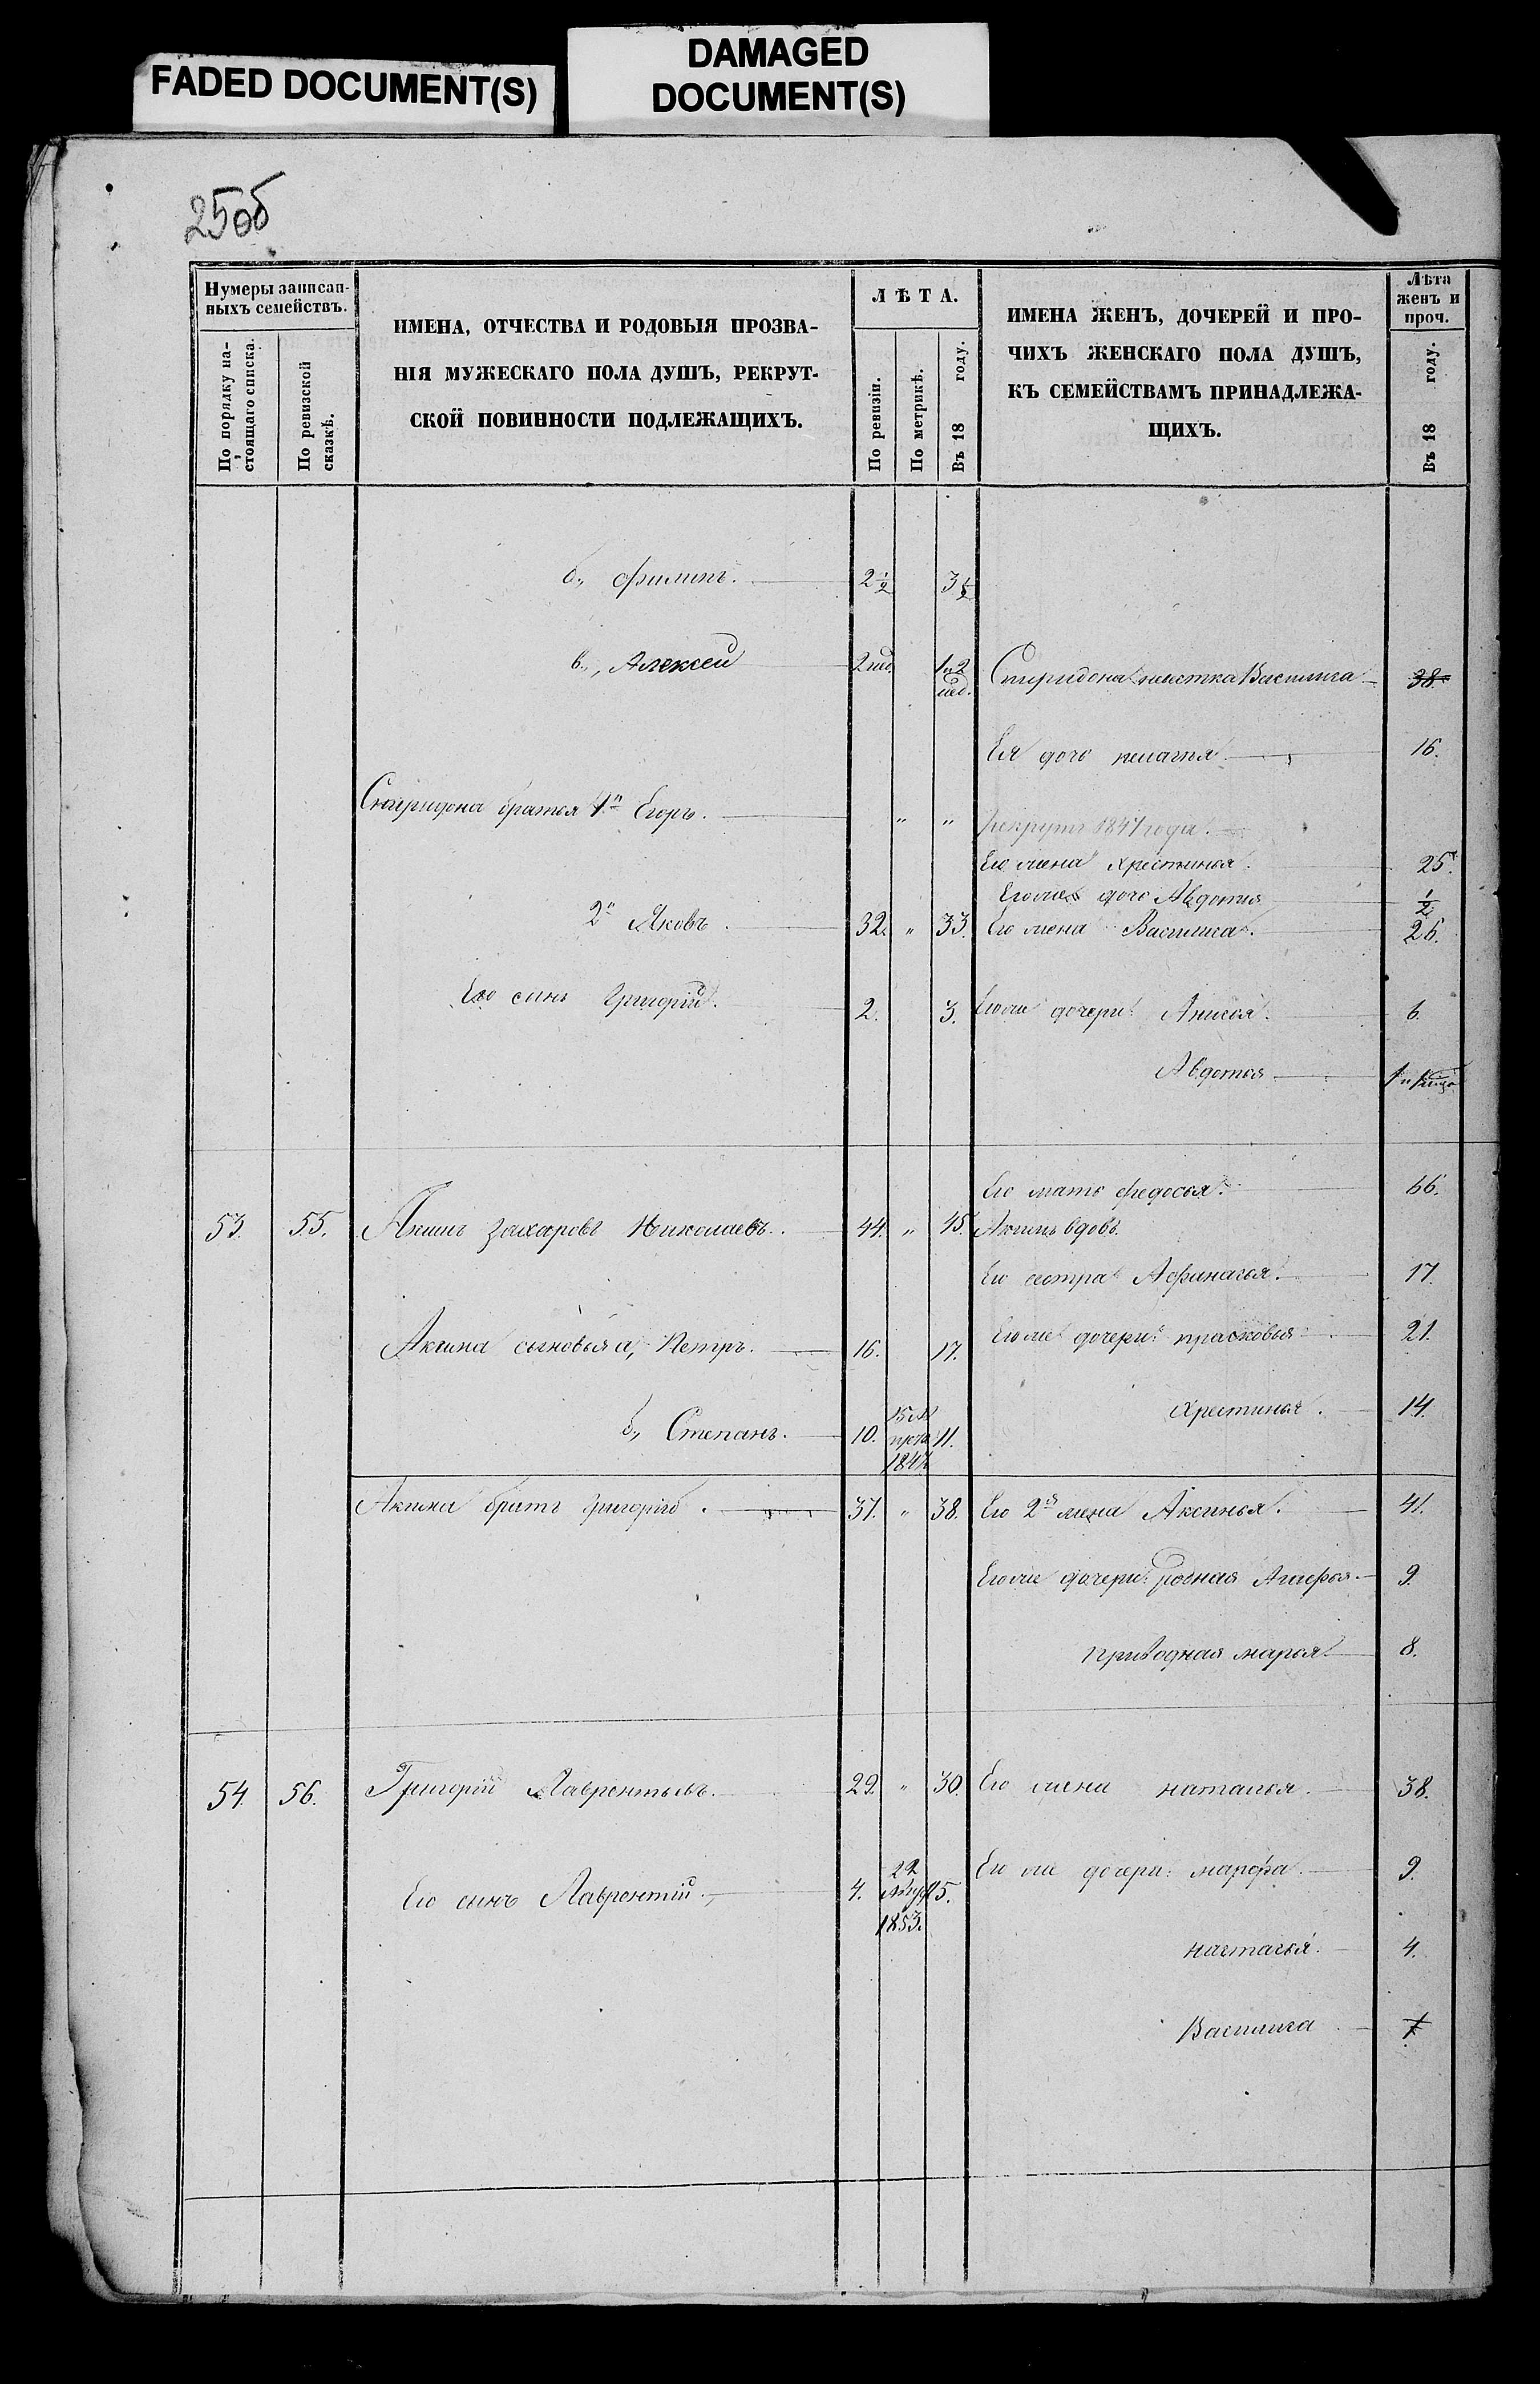 FADED DOCUMENT(S)
DAMAGED
DOCUMENT(S)
25об
Нумеры записан-
ныхъ семействъ.
По порядку на-
стоящаго списка.
По ревизской
сказкѣ.
ИМЕНА, ОТЧЕСТВА И РОДОВЫЯ ПРОЗВА-
НІЯ МУЖЕСКАГО ПОЛА ДУШЪ, РЕКРУТ-
СКОЙ ПОВИННОСТИ ПОДЛЕЖАЩИХЪ.
ЛѢТА.
По ревизіи.
По метрикѣ.
Въ 18 году.
ИМЕНА ЖЕНЪ, ДОЧЕРЕЙ И ПРО-
ЧИХЪ ЖЕНСКАГО ПОЛА ДУШЪ,
КЪ СЕМЕЙСТВАМЪ ПРИНАДЛЕЖА-
ЩИХЪ.
Лѣта
женъ и
проч.
Въ 18 году.
б., Филипъ. 2½ 3½
в., Алексей 2 нед. 1 и 2 нед. Спиридона невѣстка Василиса 38.
Ея дочь пелагея 16.
Спиридона братья 1й Егоръ. " " рекрутъ 1847 года.
Его жена Хрестинья. 25.
Его же дочь Авдотья ½
2й Яковъ. 32. " 33. Его жена Василиса. 26.
Его сынъ Григорій. 2. 3. Его же дочери: Анисья. 6.
Авдотья
Его мать Федосья. 66.
53. 55. Акимъ Захаровъ Николаевъ. 44. " 45. Акимъ вдовъ.
Его сестра Афанасья. 17.
Акима сыновья а, Петръ. 16. 17. Его же дочери: прасковья 21.
Хрестинья. 14.
б., Степанъ. 10. 15 1847 11.
Акима братъ Григорій. 37. " 38. Его 2я жена Аксинья. 41.
Его же дочери: родная Агафья. 9.
приводная марья 8.
54. 56. Григорій Лаврентьевъ. 29. " 30. Его жена наталья. 38.
Его же дочери: марфа. 9.
Его сынъ Лаврентій. 4. 22 1853. 5.
настасья. 4.
Василиса 1